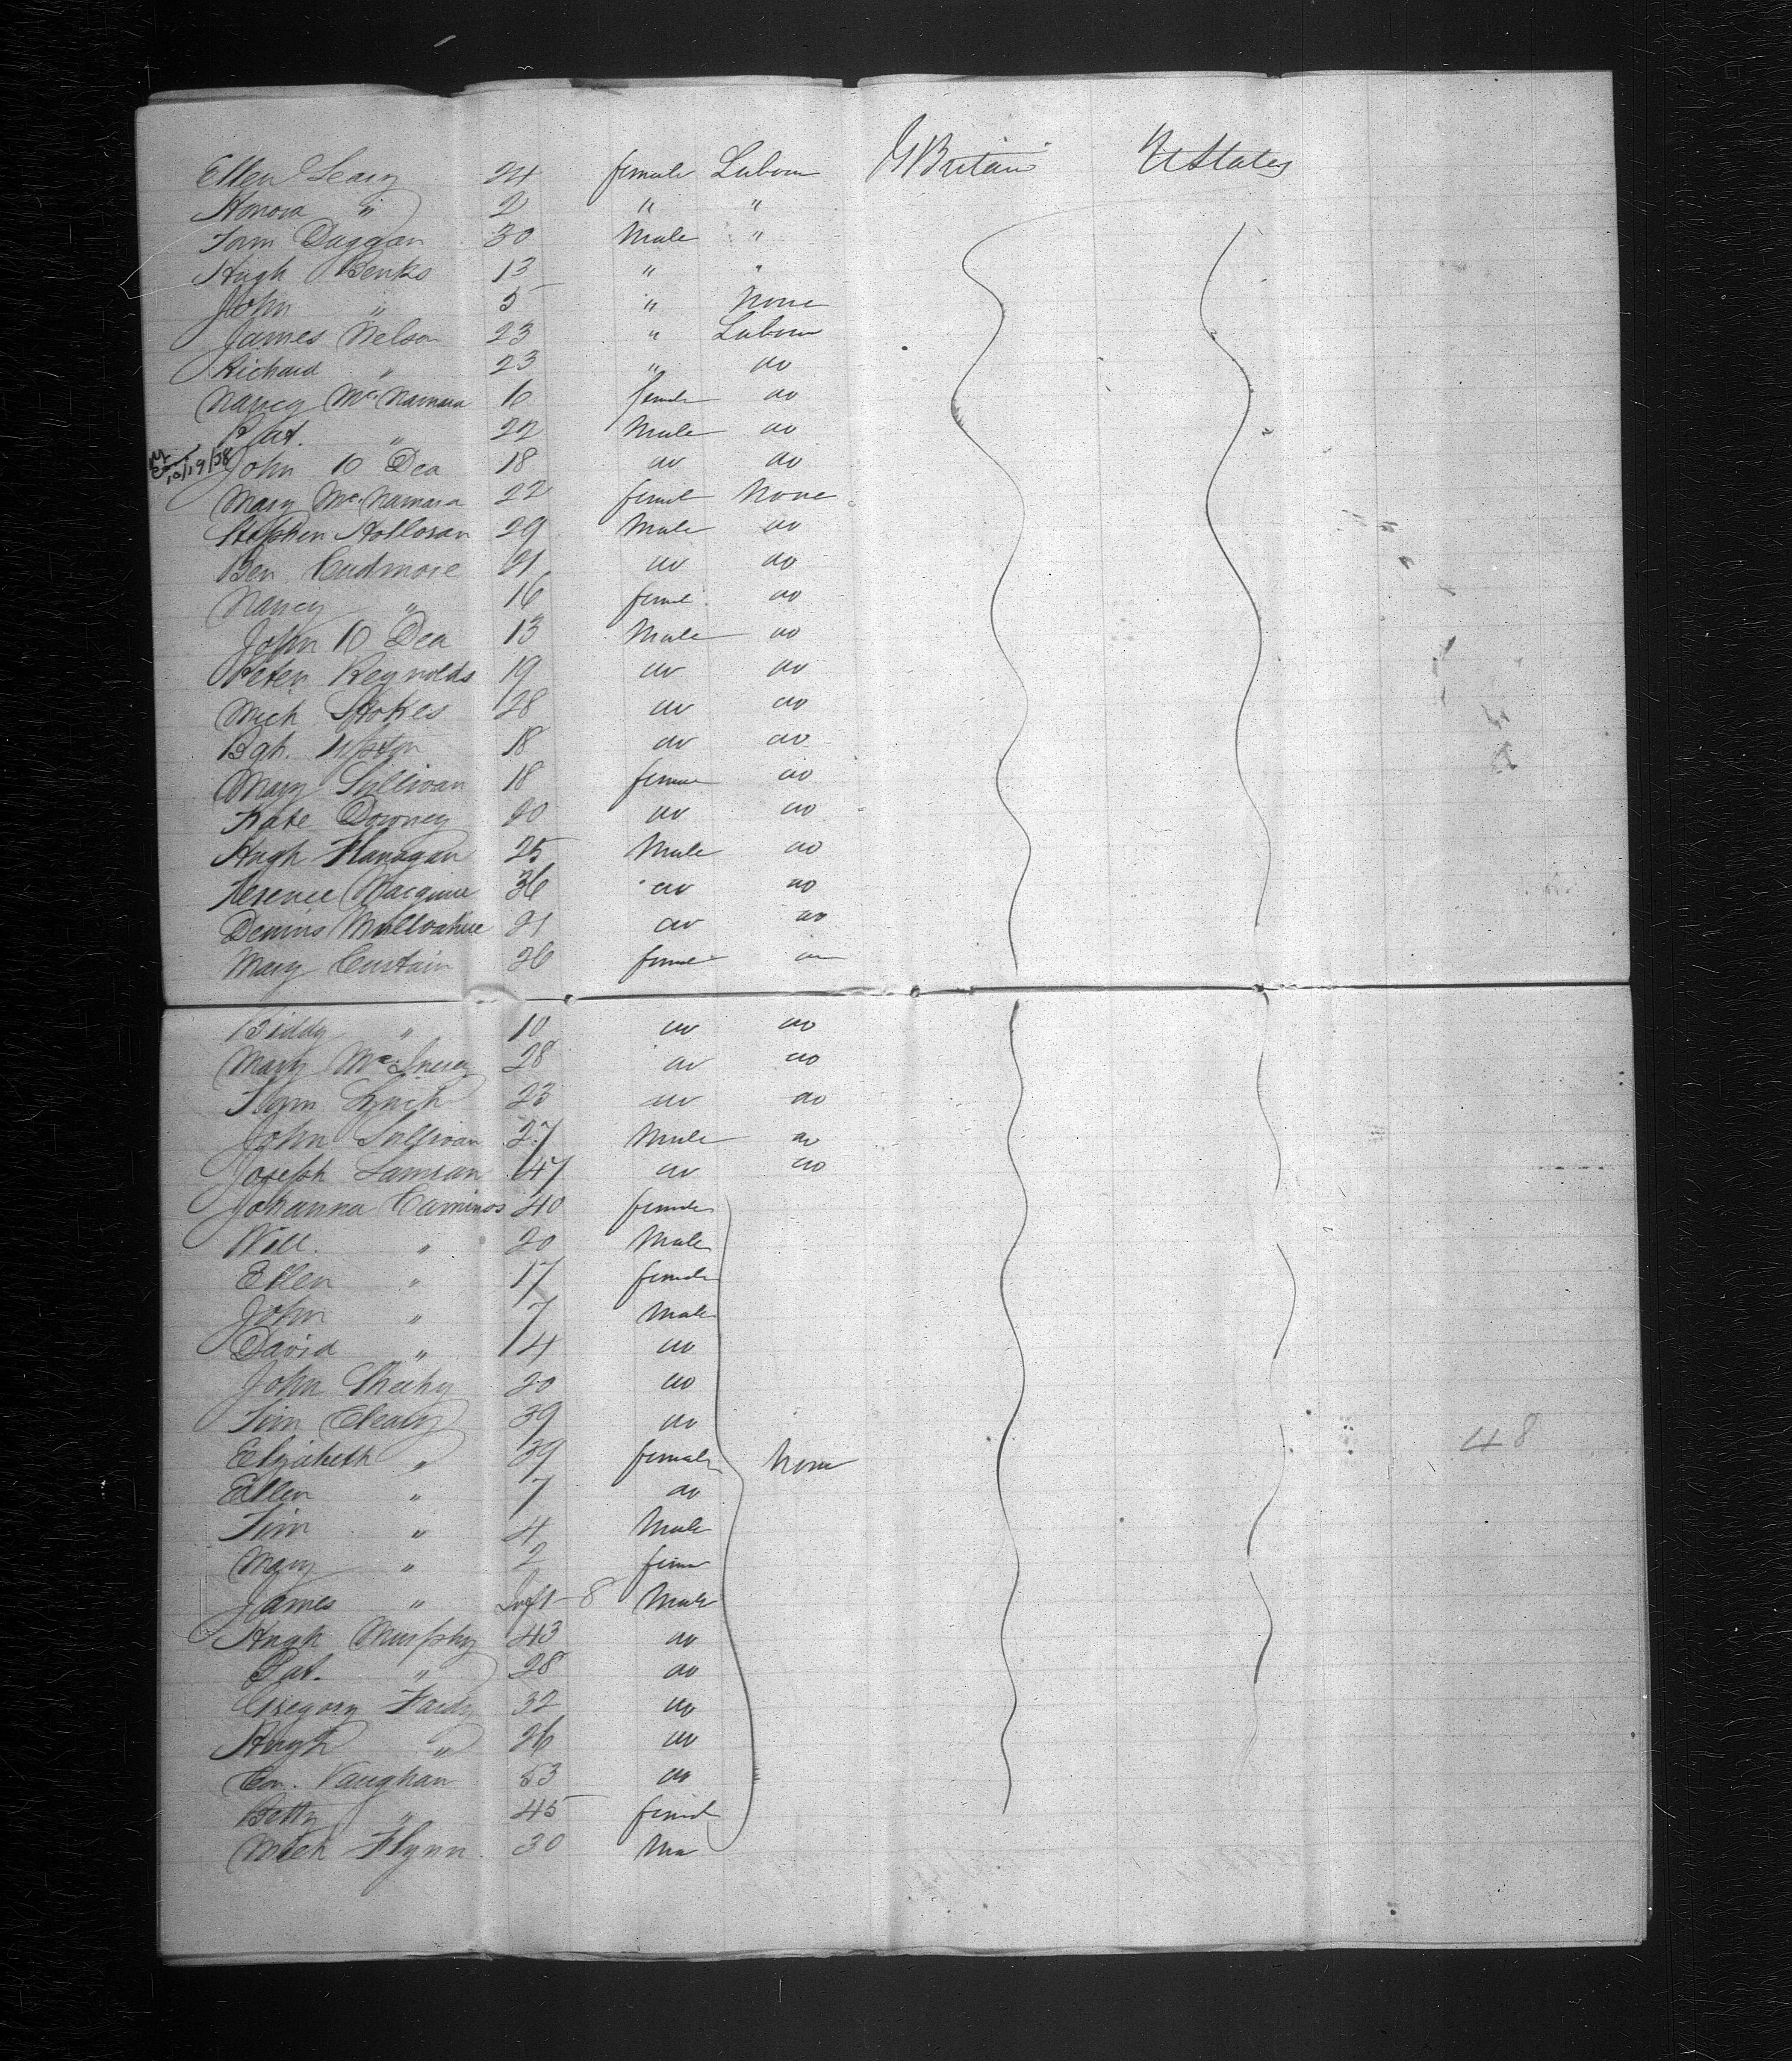 Ellen Leary 24 female Labour G Britain U States
Honora " 2 " "
Tom Duggan 30 Male "
Hugh Benks 13 " "
John " 5 " None
James Nelson 23 " Labour
Richard " 23 " do
Nancy McNamara 16 female do
Pat. " 22 Male do
10/19/38 John O Dea 18 do do
Mary McNamara 22 female None
Stephen Holloran 29 Male do
Ben Cudmore 21 do do
Nancy " 16 female do
John O Dea 13 Male do
Peter Reynolds 19 do do
Mich Stokes 28 do do
Bgt. Upton 18 do do
Mary Sullivan 18 female do
Kate Downey 20 do do
Hugh Flanagan 25 Male do
Terence Macguire 36 do do
Dennis 21 do do
Mary Curtain 26 female do
Biddy " 10 do do
Mary 28 do do
Lynch 23 do do
John Sullivan 27 Male do
Joseph 47 do do
Johanna 40 female
Will. " 20 Male
Ellen " 17 female
John " 7 Male
David " 4 do
John Sheehy 20 do
Tim Cleary 39 do
Elizabeth " 39 female None 48
Ellen " 7 do
Tim " 4 Male
Mary " 2 female
James " Inft - 8 Male
Hugh Murphy 43 do
Pat. " 28 do
Gregory 32 do
Hugh " 26 do
Con. Vaughan 53 do
Betty " 45 female
Mich Flynn 30 Ma